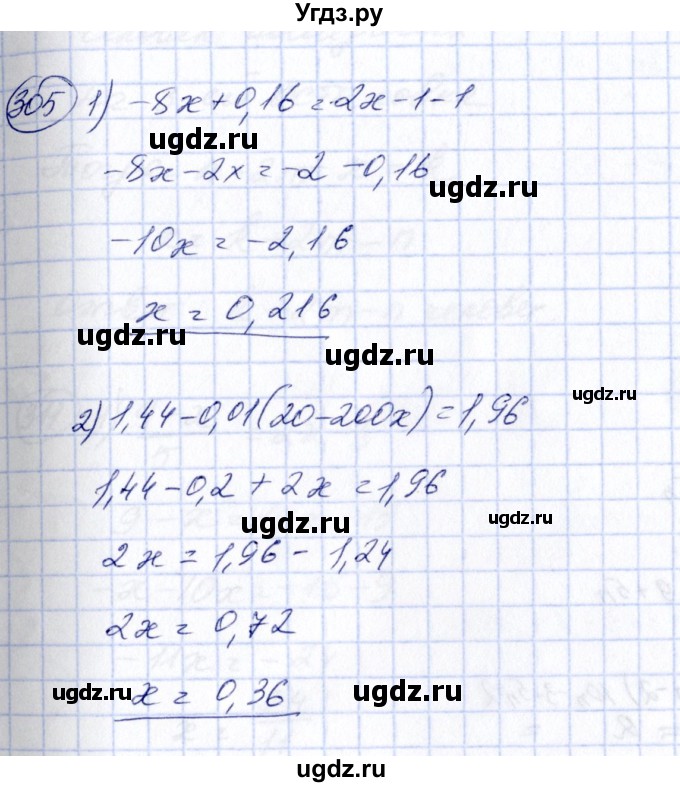 Угдз.ру
305 1) -8x+0,16=2x-1-1
ugdz.ru
-8x-2x=-2-0,16
ugdz.ru
-10x=-2,16
x=0,216
ugdz.ru
ugdz.ru
ugdz.ru
2) 1,44-0,01(20-200x)=1,96
1,44-0,2+2x=1,96
ugdz.ru
2x=1,96-1,24
2x=0,72
ugdz.ru x=0,36 ugdz.ru
ugdz.ru